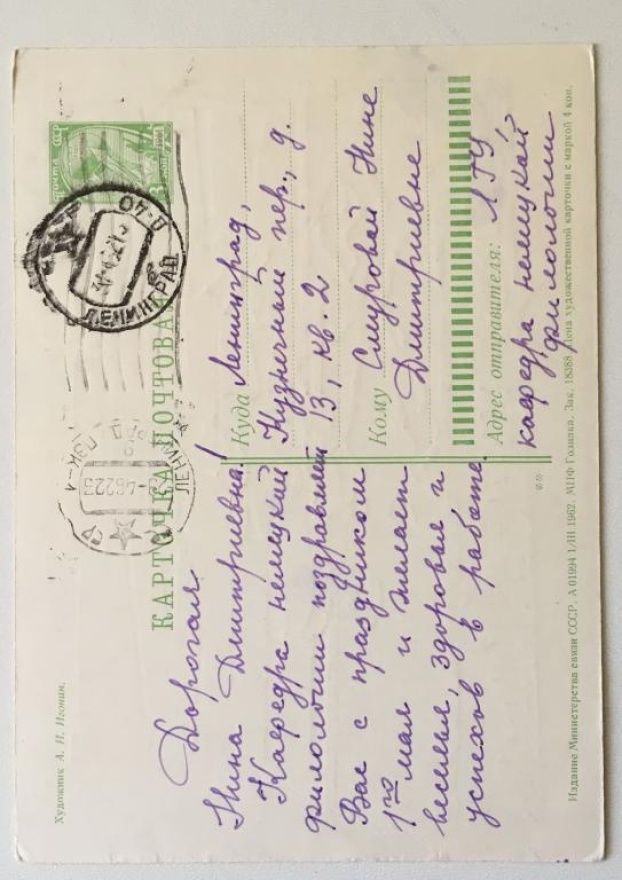 Художник А. И. Игонин.
ПОЧТА СССР
КАРТОЧКА ПОЧТОВАЯ
ЛЕНИНГРАД
Дорогая
Нина Дмитриевна!
Кафедра немецкий
филологии поздравляет
Вас с праздником
1го мая и желает
веселья, здоровья и
успехов в работе.
Куда Ленинград,
Кузнечный пер., д.
13, кв. 2
Кому Смуровой Нине
Дмитриевне
Адрес отправителя: ЛГУ
кафедра немецкой
филологии
Издание Министерства связи СССР. А 01994 1/III 1962. МПФ Гознака. Зак. 18388 Цена художественной карточки с маркой 4 коп.